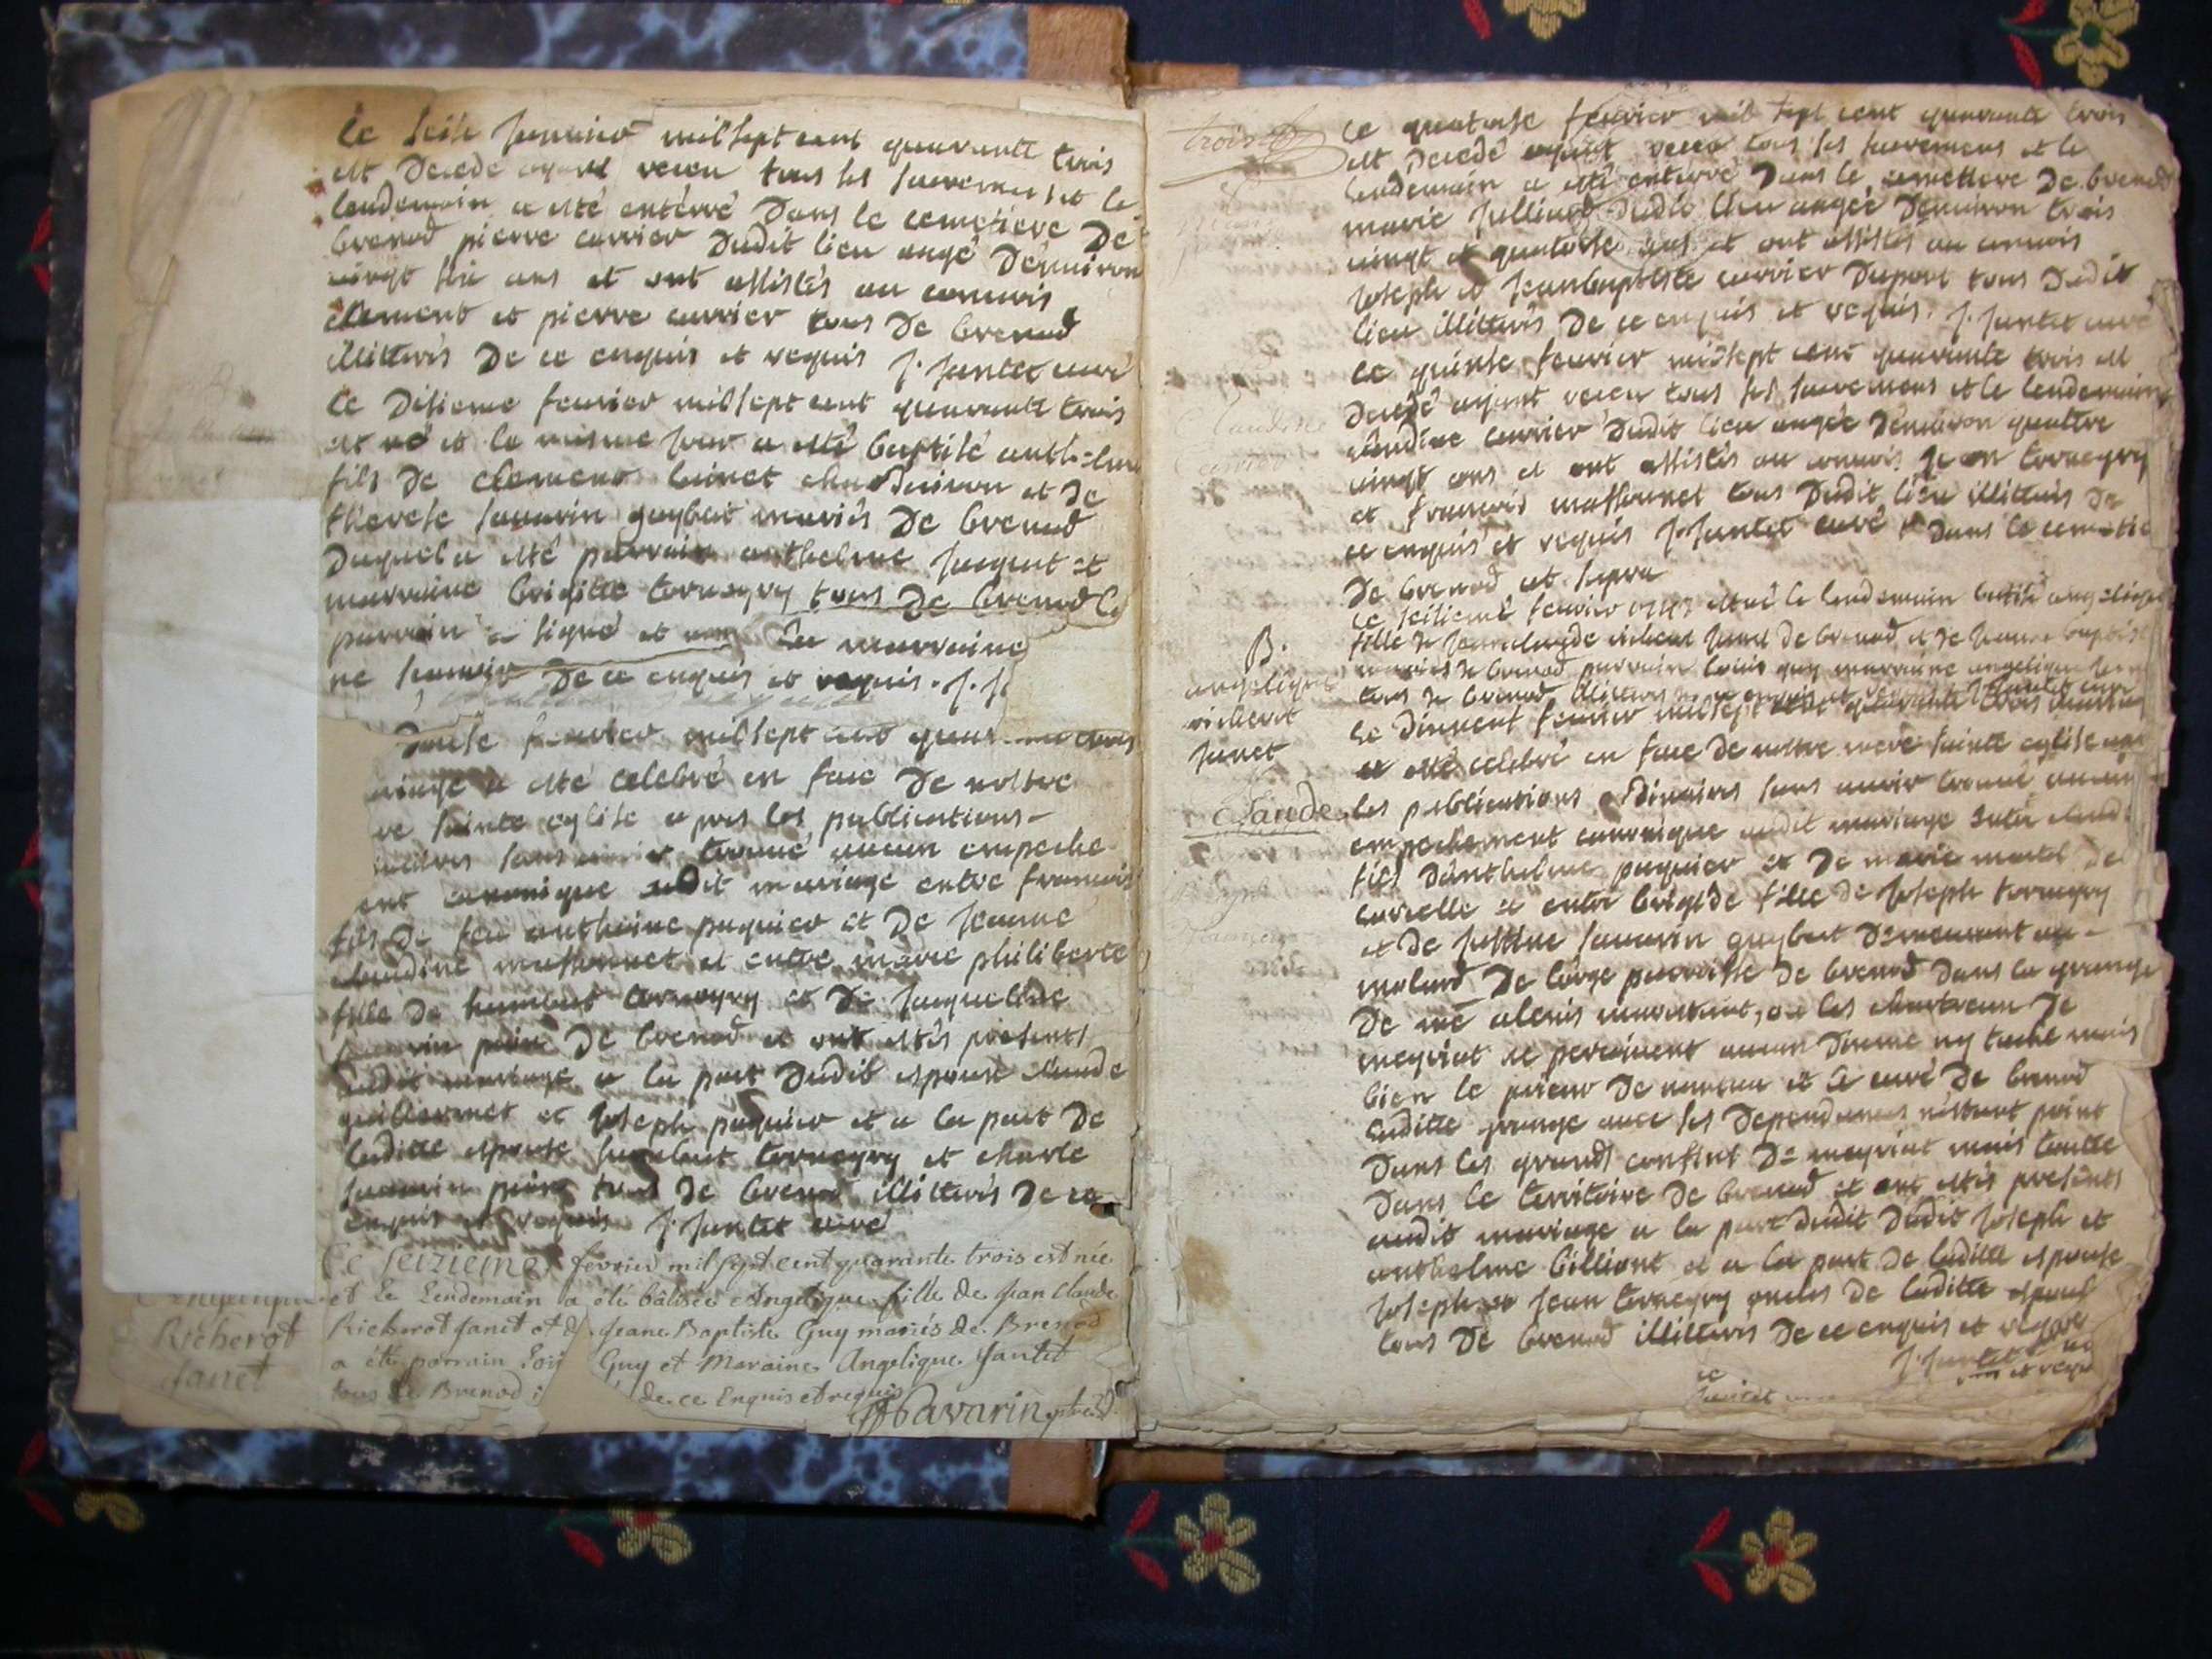 Le seise janvier mil sept cent quarante trois
est decedé ayant receu tous les sacremens et le
lendemain a esté enterré dans le cemetiere de
brenod pierre carrier dudit lieu angé d'environ
vingt six ans et ont assistés au convois
clement et pierre carrier tous de brenod
illitterés de ce enquis et requis j. jantet curé
Le disieme fevrier mil sept cent quarante trois
est né et le mesme jour a esté baptisé anthelme
fils de clement binet et de
therese savarin guybet mariés de brenod
duquel a esté parrain anthelme et
marraine brigitte torneyry tous de brenod le
parrain a signé et la marraine
ne de ce enquis et requis. j. j
douse fevrier mil sept cent quar trois
riage a esté celebré en face de nostre
re sainte eglise apres les publications
sans trouvé aucun empeche
ent canonique audit mariage entre francois
fils de feu antheine puquier et de jeanne
claudine massonnet et entre marie philiberte
fille de humbert torneyry et de jacqueline
de brenod et ont estés presents
audit mariage a la part dudit espoux claude
guillermet et joseph puquier et a la part de
laditte espouse humbert torneyry et charle
savarin tous de brenod illitterés de ce
enquis et requis j. jantet curé
Ce Seizieme février mil sept cent quarante trois est née
et le Lendemain a été bâtisée Angelique fille de jean Claude
Richerot Janet
Richerot janet et d jeane Baptiste Guy mariés de Brenod
a été parrain Loui Guy et Maraine Angelique Jantet
tous de Brenod i de ce Enquis et requis
Savarin
trois
Ce quatorse fevrier mil sept cent quarante trois
est decedé ayant receu tous les sacremens et le
lendemain a esté enterré dans le cemetiere de brenod
marie julliard dudit lieu angée d'environ trois
vingt et quatorse ans et ont assistés au convois
joseph et jeanbaptiste carrier dupont tous dudit
lieu illitterés de ce enquis et requis. j. jantet curé
Le quinse fevrier mil sept cent quarante trois est
decedé ayant receu tous les sacremens et le lendemain
Claudine
Carrier
claudine carrier dudit lieu angée d'environ quattre
vingt ans et ont assistés au convois jean torneyry
et francois massonnet tous dudit lieu illitterés de
ce enquis et requis j. jantet curé dans le cemetie
de brenod ut supra
Le seisieme fevrier 1743 est né le lendemain batisé angelique
B.
angelique
richerot
janet
fille de jeanclaude richerot janet de brenod et de jeanne baptiste
mariés de brenod parrain louis guy marraine angelique
tous de brenod illitterés de ce enquis et requis j. jantet curé
Le disneuf fevrier mil sept cent quarante trois mariage
a esté celebré en face de nostre mere sainte eglise
Claude
les publications ordinaires sans avoir trouvé aucun
empechement canonique audit mariage entre claude
fils d'anthelme puquier et de marie martel de
corcelle et entre brigide fille de joseph torneyry
et de justine savarin guybet demeurant au
molard de lorge parroisse de brenod dans la grange
de me alexis montant, ou les chartreux de
meyriat ne percoivent aucun disme ny tache mais
bien le prieur de nantua et le curé de brenod
laditte grange avec ses dependances n'estant point
dans les grands confins de meyriat mais toutte
dans le territoire de brenod et ont estés presents
audit mariage a la part dudit dudit joseph et
anthelme billiont et a la part de laditte espouse
joseph et jean torneyry oncles de laditte espouse
tous de brenod illitterés de ce enquis et requis
j. jantet